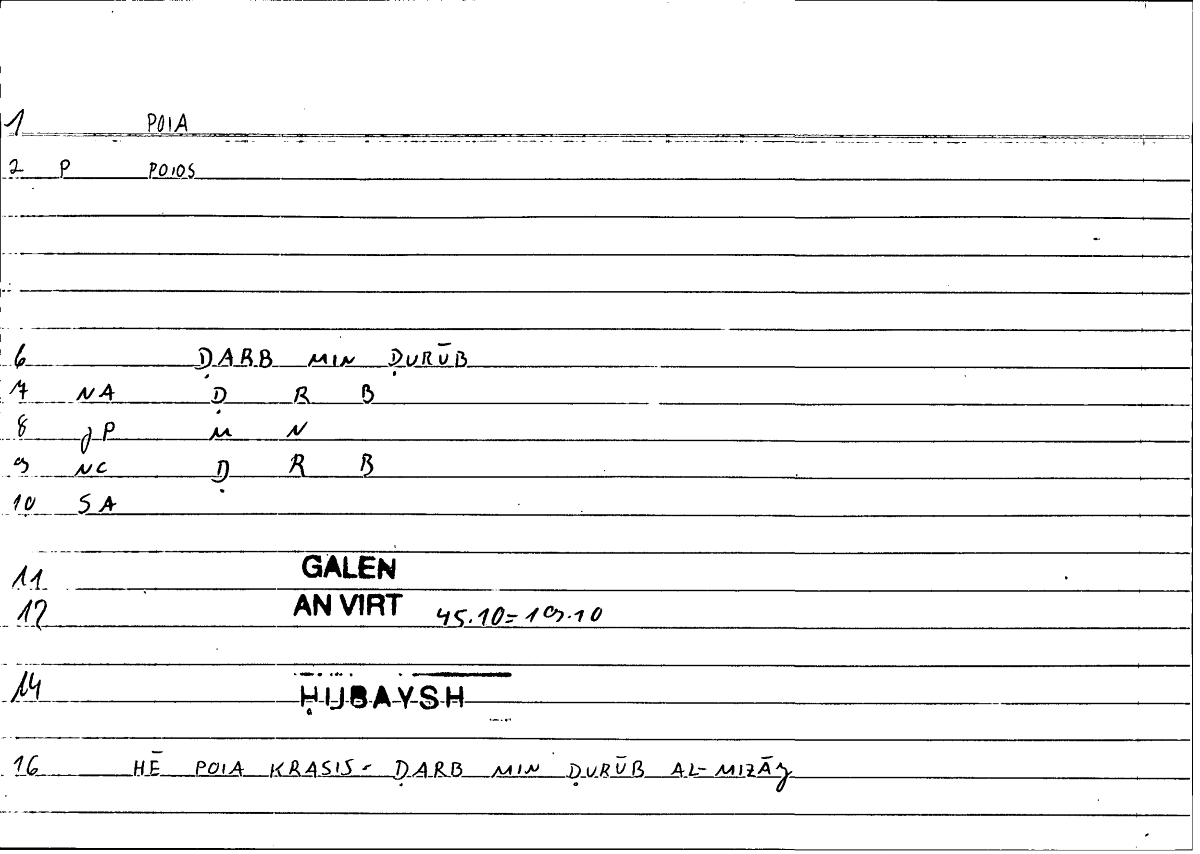 1 POIA
2 P POIOS
6 ḌARB MIN ḌURŪB
7 NA Ḍ R B
8 gP M N
9 NC Ḍ R B
10 SA
11 GALEN
12 AN VIRT 45.10=19.10
14 ḤUBAYSH
16 HĒ POIA KRASIS = ḌARB MIN ḌURŪB AL-MIZĀǧ